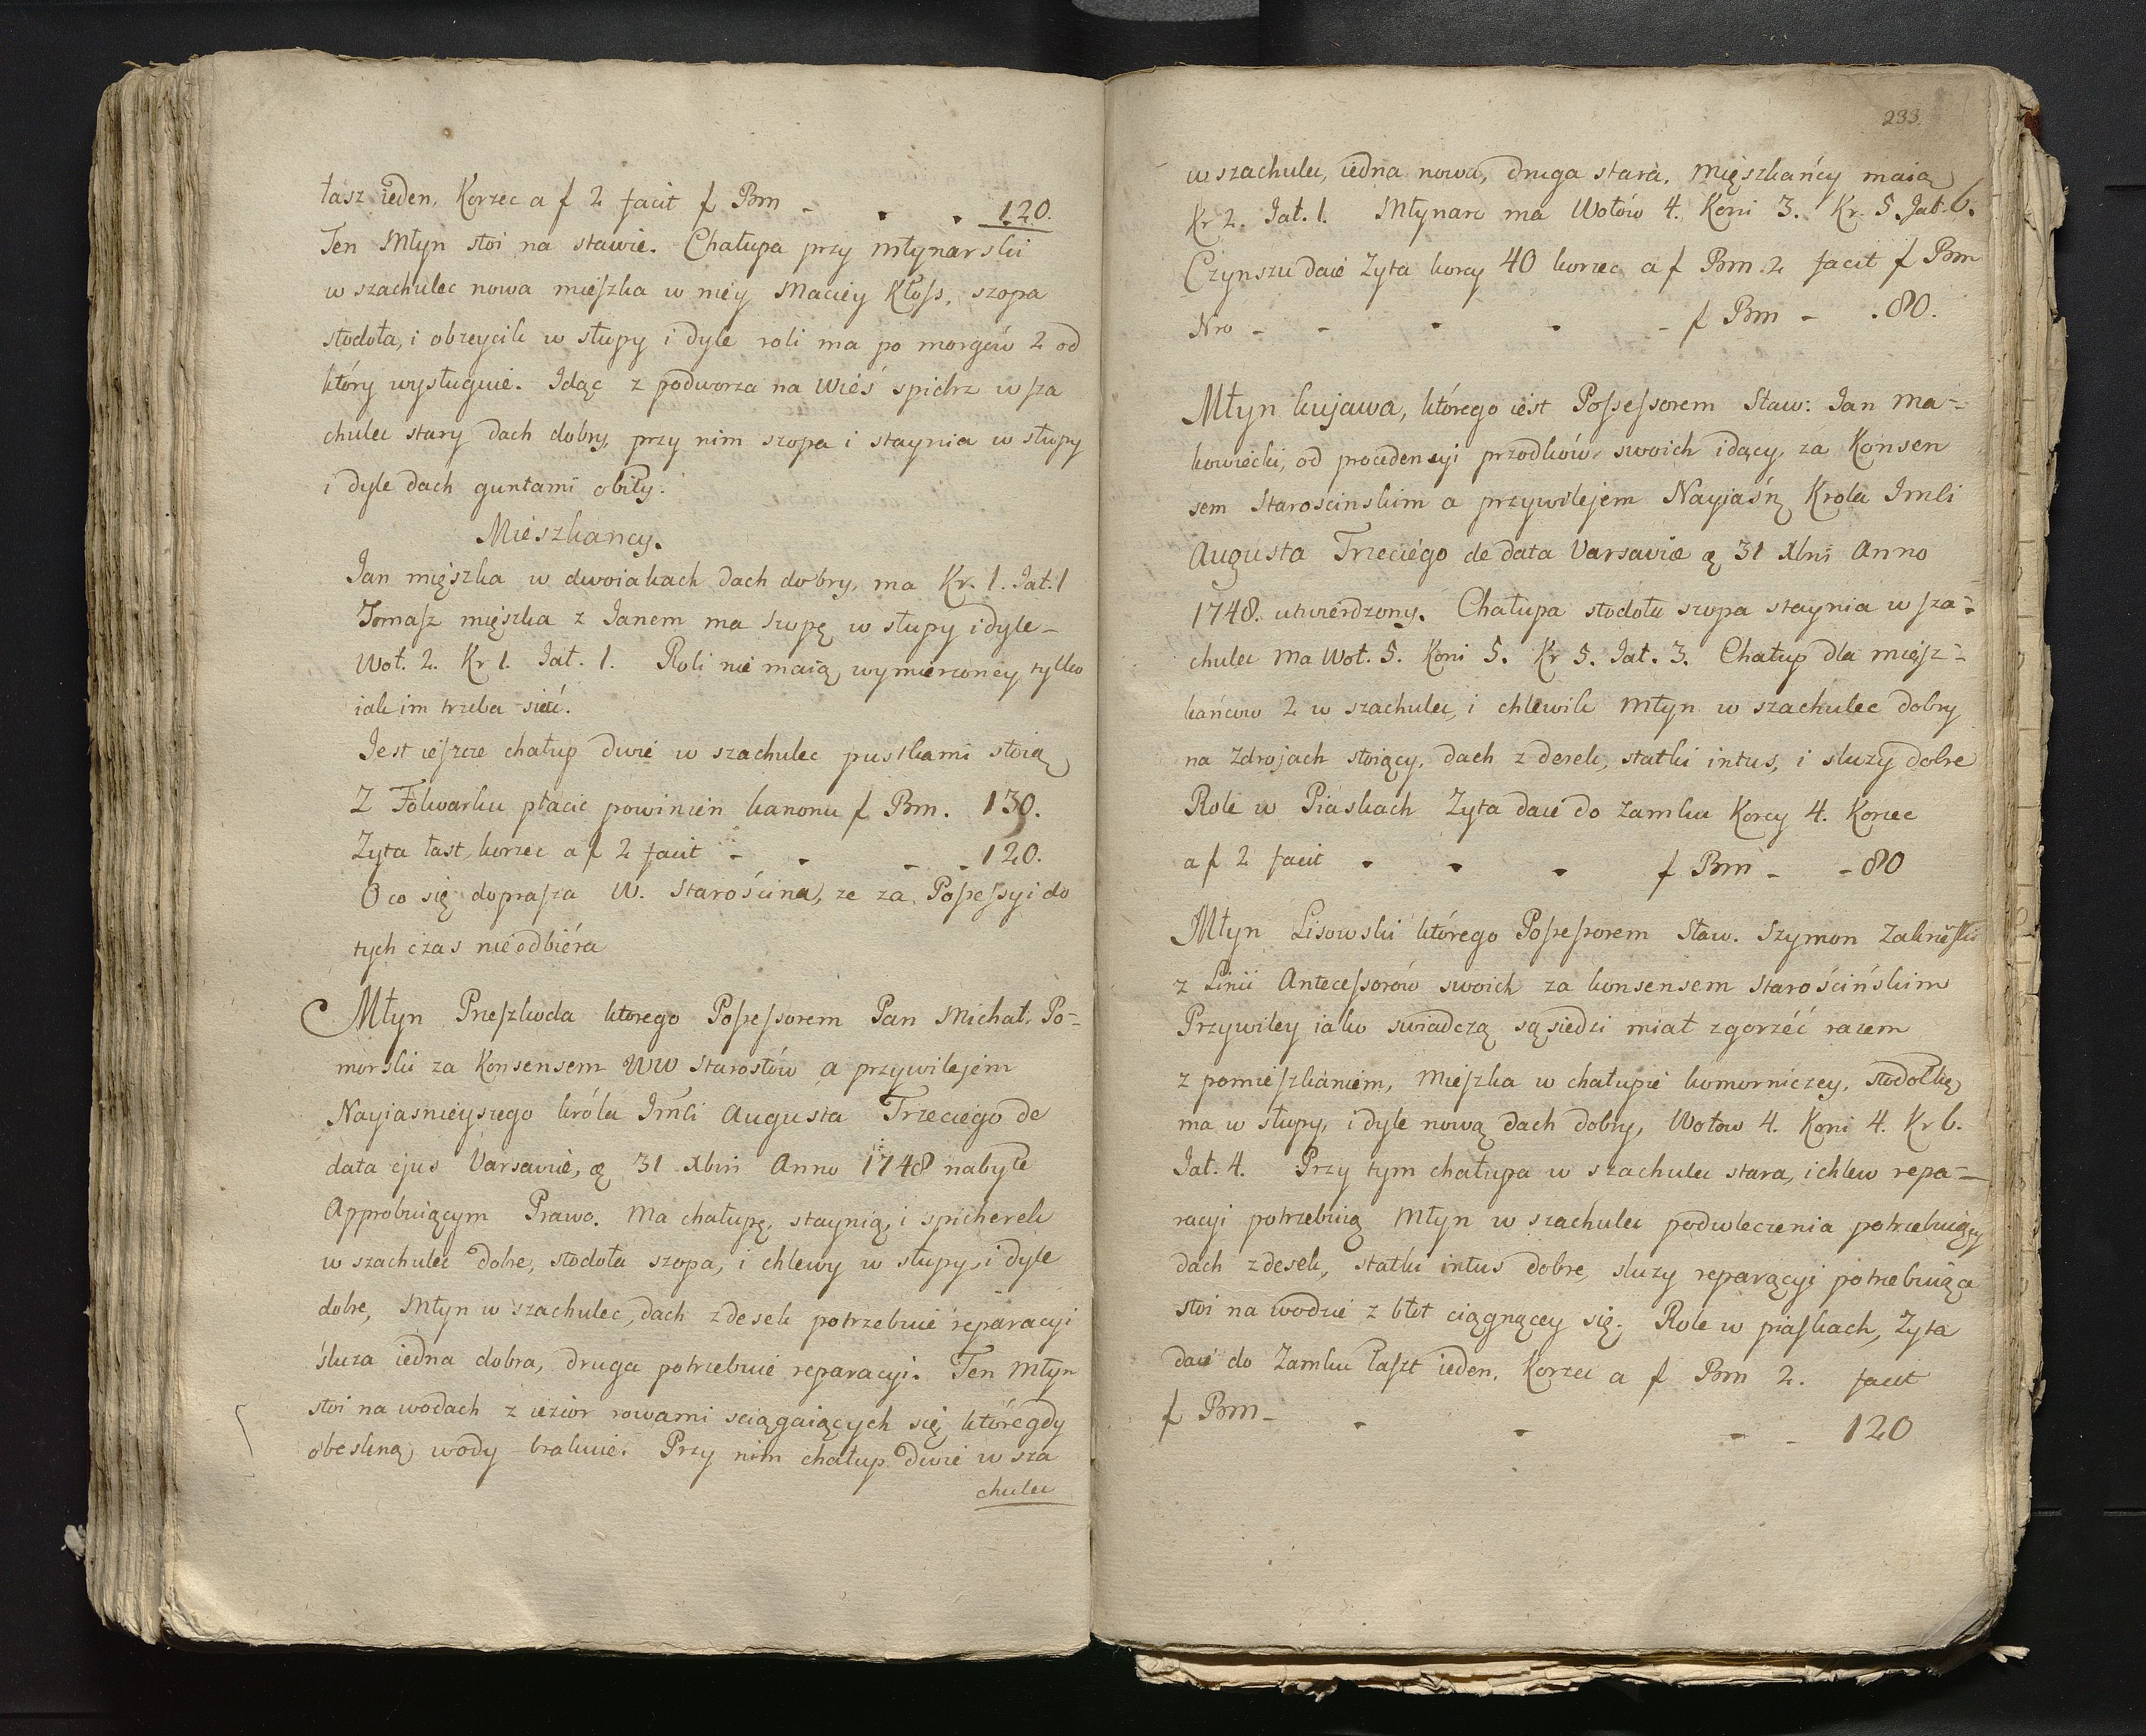 łasz ieden, Korzec a f 2 facit f Brn - . . 120.
Ten Młyn stoi na stawie. Chałupa przy młynarski
w szachulec nowa mieszka w niey Maciey Kłoss, szopa
stodoła, i obzeycik w słupy i dyle roli ma po morgów 2 od
który wysługuie. Idąc z podworza na Wieś spichrz w sza
chulec stary dach dobry, przy nim szopa i staynia w słupy
i dyle dach guntami obiły.
Mieszkancy.
Jan mięszka w dwoiakach dach dobry, ma Kr. 1. Jał. 1
Tomasz mięszka z Janem ma szopę w słupy i dyle -
Woł. 2. Kr 1. Jał. 1. Roli nie maią wymierzoney tylko
iak im trzeba siać.
Jest ieszcze chałup dwie w szachulec pustkami stoią
Z Folwarku płacic powinien kanonu f Brn. 130.
Zyta łast, korzec a f 2 facit - - - - 120.
O co się doprasza W. Starościna, ze za Possessyi do
tych czas nie odbiéra
Młyn Przeszkoda ktorego Possessorem Pan Michał Po=
morski za Konsensem WW Starostów a przywilejem
Nayiasnieyszego króla Jmći Augusta Trzeciego de
data ejus Varsavie, ą 31 Xbris Anno 1748 nabyte
Approbuiącym Prawo. Ma chałupę, staynią, i spicherek
w szachulec dobre, stodoła szopa, i chlewy w słupy i dyle
dobre, Młyn w szachulec, dach z desek potrzebuie reparacyi
śluza iedna dobra, druga potrzebuie reparacyi. Ten Młyn
stoi na wodach z iezior rowami sciągaiących się, które gdy
obeskną wody brakuie. Przy nim chałup dwie w sza
chulec
233.
w szachulec, iedna nowa, druga stara. Mięszkańcy maią
Kr 2. Jał. 1. Młynarz ma Wołów 4. Koni 3. Kr. 5. Jał. 6.
Czynszu daie Zyta korcy 40 korzec a f Brn. 2 facit f Brn
Nro - - . . - f Brn - . 80.
Młyn kujawa, którego iest Possessorem Sław: Jan Ma=
kowiecki, od procedencyi przodków swoich idący, za Konsen
sem Starościnskim a przywilejem Nayiaśń Krola Jmći
Augusta Trzeciégo de data Varsavie ą 31 Xbris Anno
1748. utwierdzony. Chałupa stodoła szopa staynia w sza=
chulec Ma Woł. 5. Koni 5. Kr 5. Jał. 3. Chałup dla miesz=
kańcow 2 w szachulec, i chlewik Młyn w szachulec dobry
na Zdrojach stoiący, dach z desek, statki intus, i sluzy dobre
Role w Piaskach Zyta daie do Zamku Korcy 4. Korzec
a f 2 facit . . . f Brn - - 80
Młyn Lisowski którego Possessorem Sław. Szymon
z Linii Antecessorów swoich za konsensem starościńskim
Przywiley iako swiadczą sąsiedzi miał zgorzéć razem
z pomieszkaniem, Mieszka w chałupie komorniczey, stodołkę
ma w słupy, i dyle nową dach dobry, Wołow 4. Koni 4. Kr 6.
Jał. 4. Przy tym chałupa w szachulec stara, i chlew repa=
racyi potrzebuią Młyn w szachulec podwleczenia potrzebuiący
dach z desek, statki intus dobre, sluzy reparącyi potrzebuiąca
stoi na wodzie z błot ciągnącey się. Role w piaskach, Zyta
daie do Zamku łaszt ieden, Korzec a f Brn 2. facit
f Brn - . . - - 120